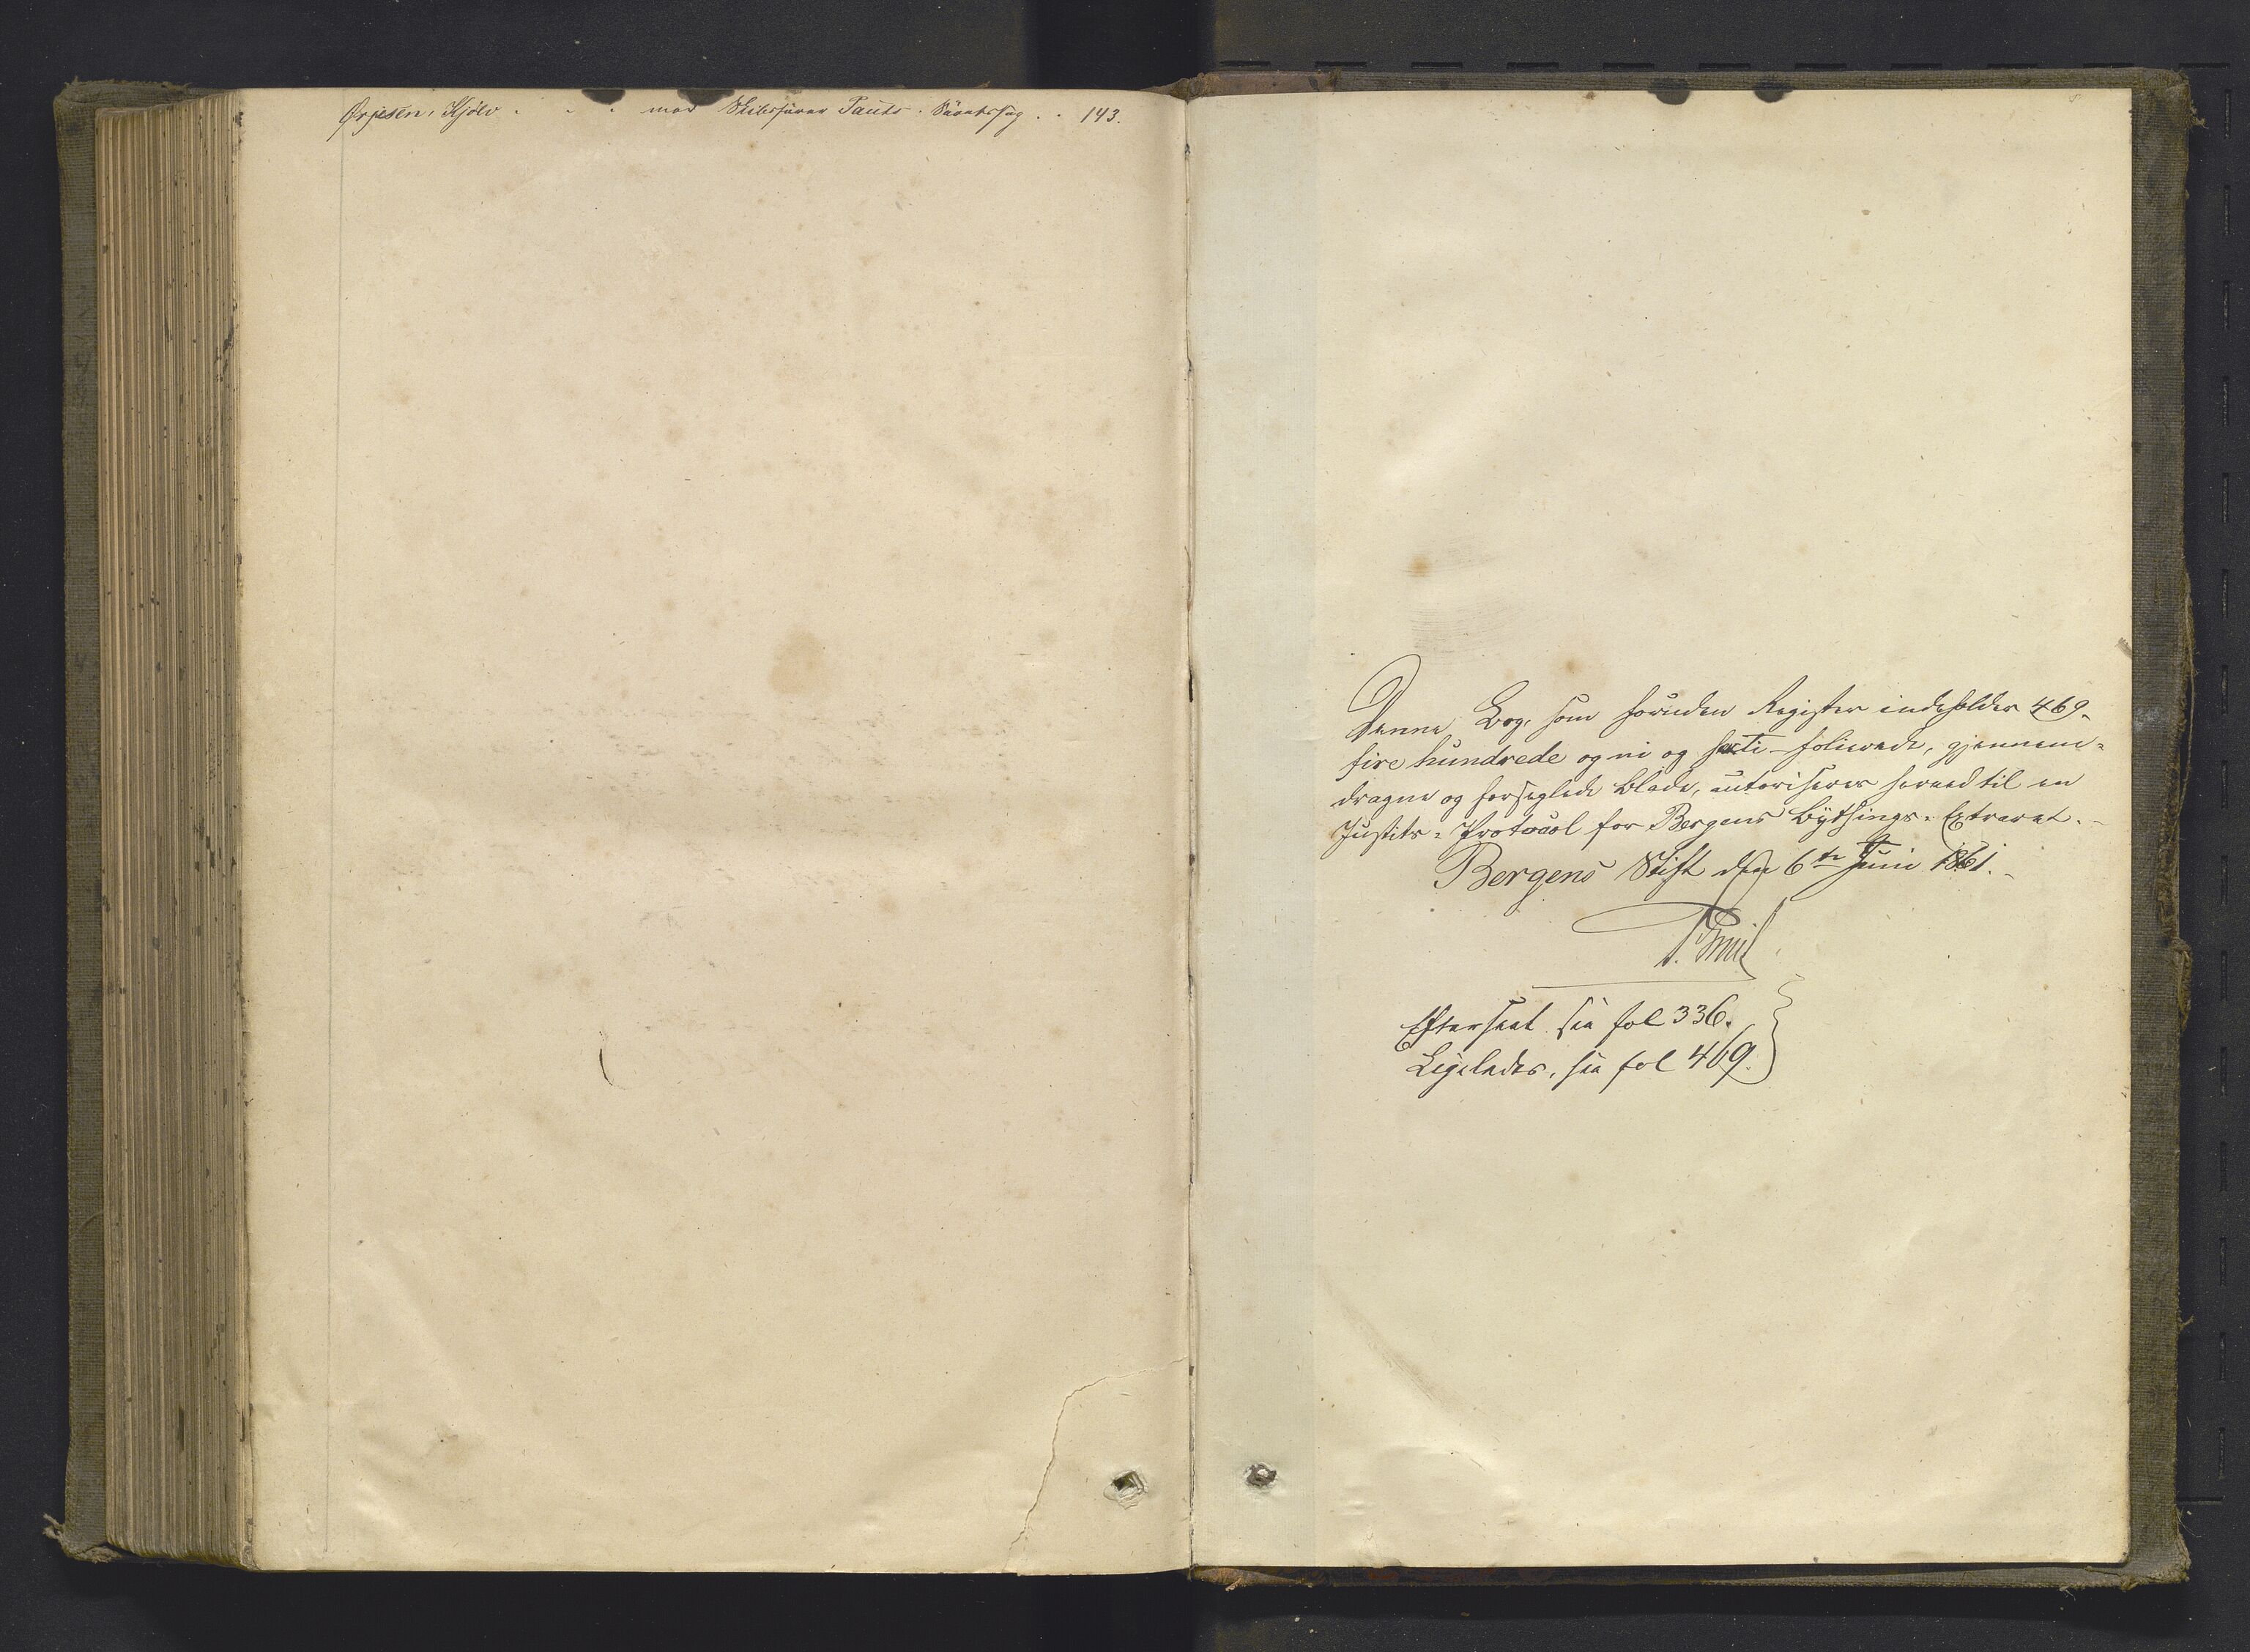 Ørjesen, Kjölv . . . mod Skibsfører Pauts. Söretssag . . 143.
Denne Bog, som foruden Register indeholder 469-
fire hundrede og ni og sexti - folierede, gjennem-
dragne og forseglede Blade, autoriseres herved til en
Justits-Protocol for Bergens Bythings-Extraret. -
Bergens Stift den 6te Juni 1861. -
Efterseet see fol 336.
Ligeledes, see fol 469.